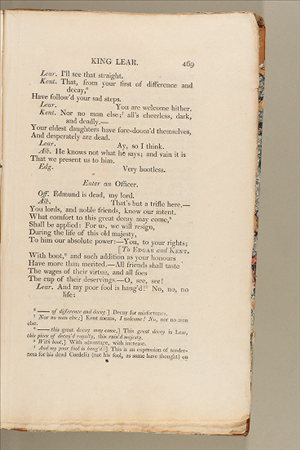 KING LEAR. 469
Lear. I'll see that straight.
Kent. That, from your first of difference and
decay,⁶
Have follow'd your sad steps.
Lear. You are welcome hither.
Kent. Nor no man else;⁷ all's cheerless, dark,
and deadly.—
Your eldest daughters have fore-doom'd themselves,
And desperately are dead.
Lear. Ay, so I think.
Alb. He knows not what he says; and vain it is
That we present us to him.
Edg. Very bootless.
Enter an Officer.
Off. Edmund is dead, my lord.
Alb. That's but a trifle here.—
You lords, and noble friends, know our intent.
What comfort to this great decay may come,⁸
Shall be applied: For us, we will resign,
During the life of this old majesty,
To him our absolute power:—You, to your rights;
[To EDGAR and KENT.
With boot,⁹ and such addition as your honours
Have more than merited.—All friends shall taste
The wages of their virtue, and all foes
The cup of their deservings.—O, see, see!
Lear. And my poor fool is hang'd!¹ No, no, no
life:
⁶ —— of difference and decay,] Decay for misfortunes.
⁷ Nor no man else;] Kent means, I welcome! No, nor no man
else.
⁸ —— this great decay may come,] This great decay is Lear,
this piece of decay'd royalty, this ruin'd majesty.
⁹ With boot,] With advantage, with increase.
¹ And my poor fool is hang'd!] This is an expression of tender-
ness for his dead Cordelia (not his fool, as some have thought) on